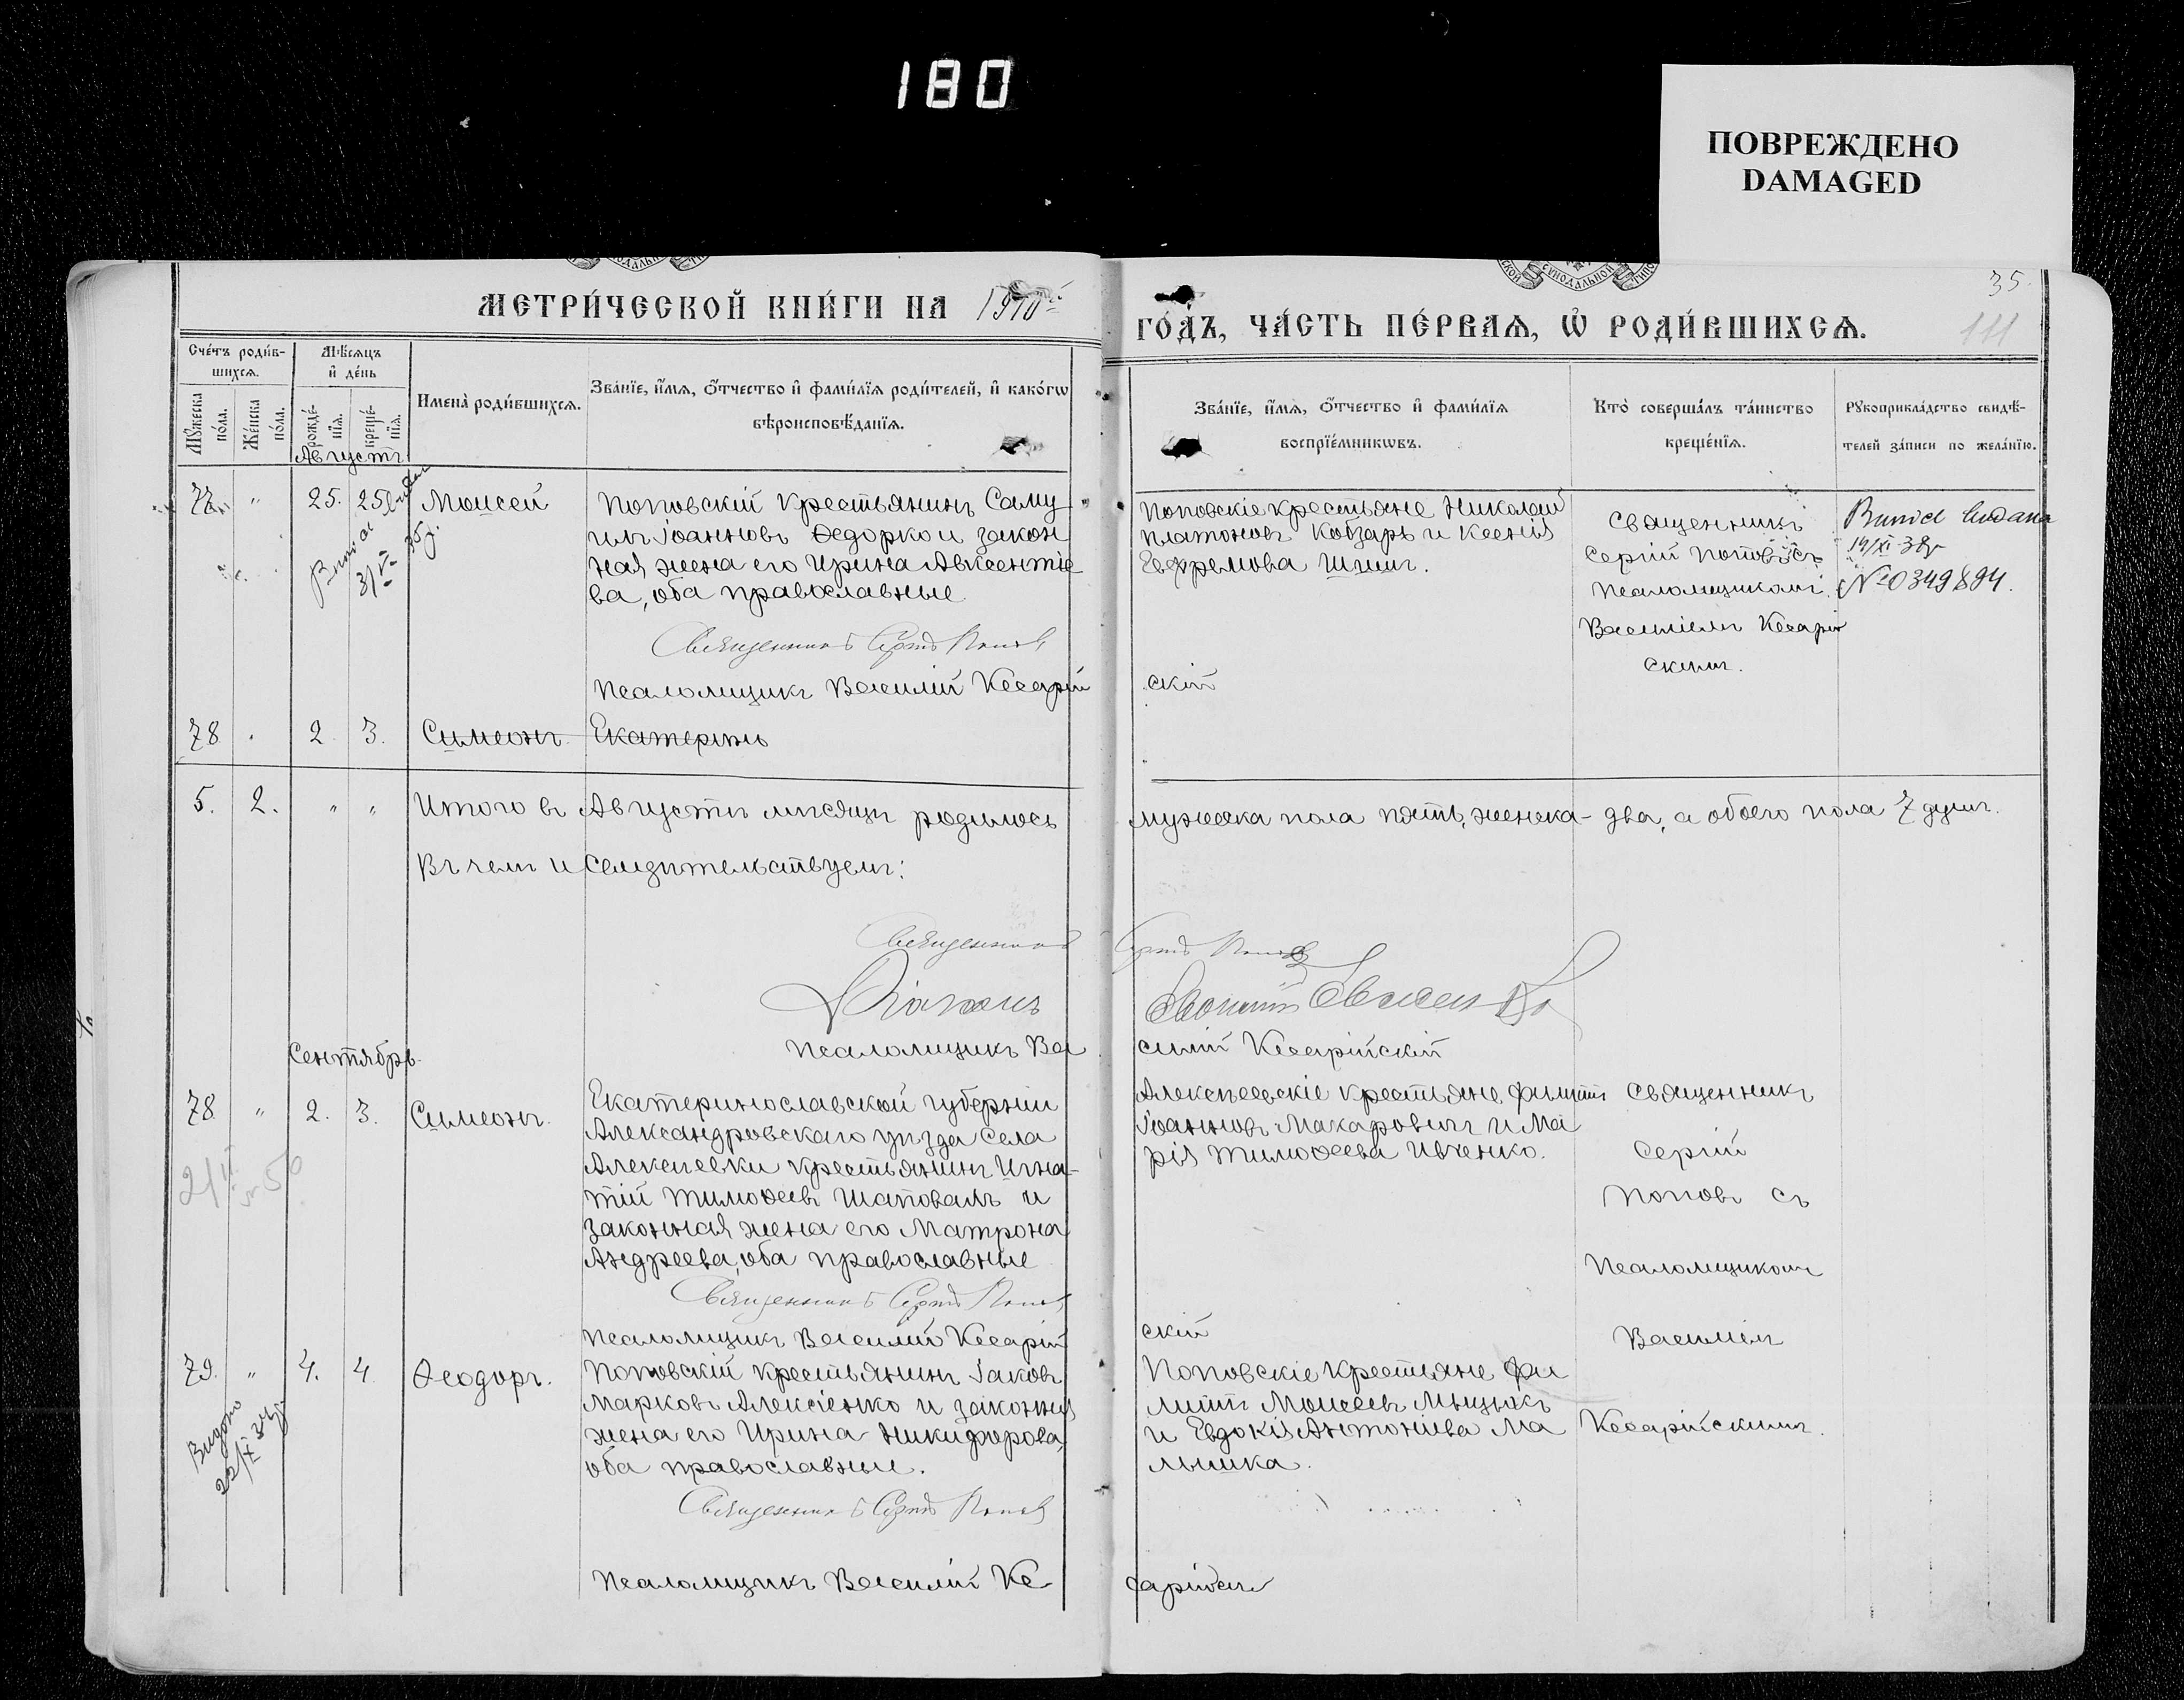 180
ПОВРЕЖДЕНО
DAMAGED
МЕТРИ́ЧЕСКОЙ КНИ́ГИ НА 1910й
ГО́ДЪ, ЧА́СТЬ ПЕ́РВАѦ, Ѡ҆ РОДИ́ВШИХСѦ.
35.
111
Сче́тъ роди́в-
шихсѧ.
Мѣ́сѧцъ
и҆ де́нь
Мꙋ́жеска
по́ла.
Же́нска
по́ла.
рожде́-
нїѧ.
креще́-
нїѧ.
Имена̀ роди́вшихсѧ.
Зва́нїе, и҆́мѧ, о҆́тчество и҆ фами́лїѧ роди́телей, и҆ како́гѡ
вѣроисповѣ́данїѧ.
Зва́нїе, и҆́мѧ, о҆́тчество и҆ фами́лїѧ
воспрїе́мникѡвъ.
Кто̀ соверша́лъ та́инство
креще́нїѧ.
Рꙋкоприкла́дство свидѣ́-
телей за́писи по жела́нїю.
Августъ
77 " 25. 25 Моисей
Поповскій крестьянинъ Саму
илъ Іоанновъ Ѳедорко и закон
ная жена его Ирина Авксентіе
ва, оба православные
Священникъ Сергій Поповъ
Псаломщикъ Василій Кесарій
скій
Поповскіе крестьяне Николай
Платоновъ Кобзарь и Ксенія
Ефремова Шишъ.
Священникъ
Сергій Поповъ съ
псаломщикомъ
Василіемъ Кесарій
скимъ.
14/XI 38г
№ 0349894.
31/V 35г.
78 " 2 3. Симеонъ Екатерино
5. 2. " " Итого въ Августѣ мѣсяцѣ родилось мужеска пола пять, женска - два, а обоего пола 7 душъ.
Въ чемъ и свидѣтельствуемъ:
Священникъ Сергій Поповъ
Діаконъ
Псаломщикъ Василій Кесарійскій
Сентябрь
78 " 2. 3. Симеонъ.
Екатеринославской губерніи
Александровскаго уѣзда села
Алексѣевки крестьянинъ Игна-
тій Тимоѳеевъ Шаповалъ и
законная жена его Матрона
Андреева, оба православные
Священникъ Сергій Поповъ
Псаломщикъ Василій Кесарій
скій
Алексѣевскіе крестьяне Филиппъ
Іоанновъ Макаровичъ и Ма
рія Тимоѳеева Ивченко.
Священникъ
Сергій
Поповъ съ
псаломщикомъ
Василіемъ
Кесарійскимъ.
79. " 4. 4. Ѳеодоръ.
Поповскій крестьянинъ Іаковъ
Марковъ Алексіенко и законная
жена его Ирина Никифорова,
оба православные.
Священникъ Сергій Поповъ
Псаломщикъ Василій Ке-
сарійскій
Поповскіе крестьяне Фи
липпъ Моисеевъ Мыцыкъ
и Евдокія Антоніева Ма
лышка.
Видано
22/IX 34г